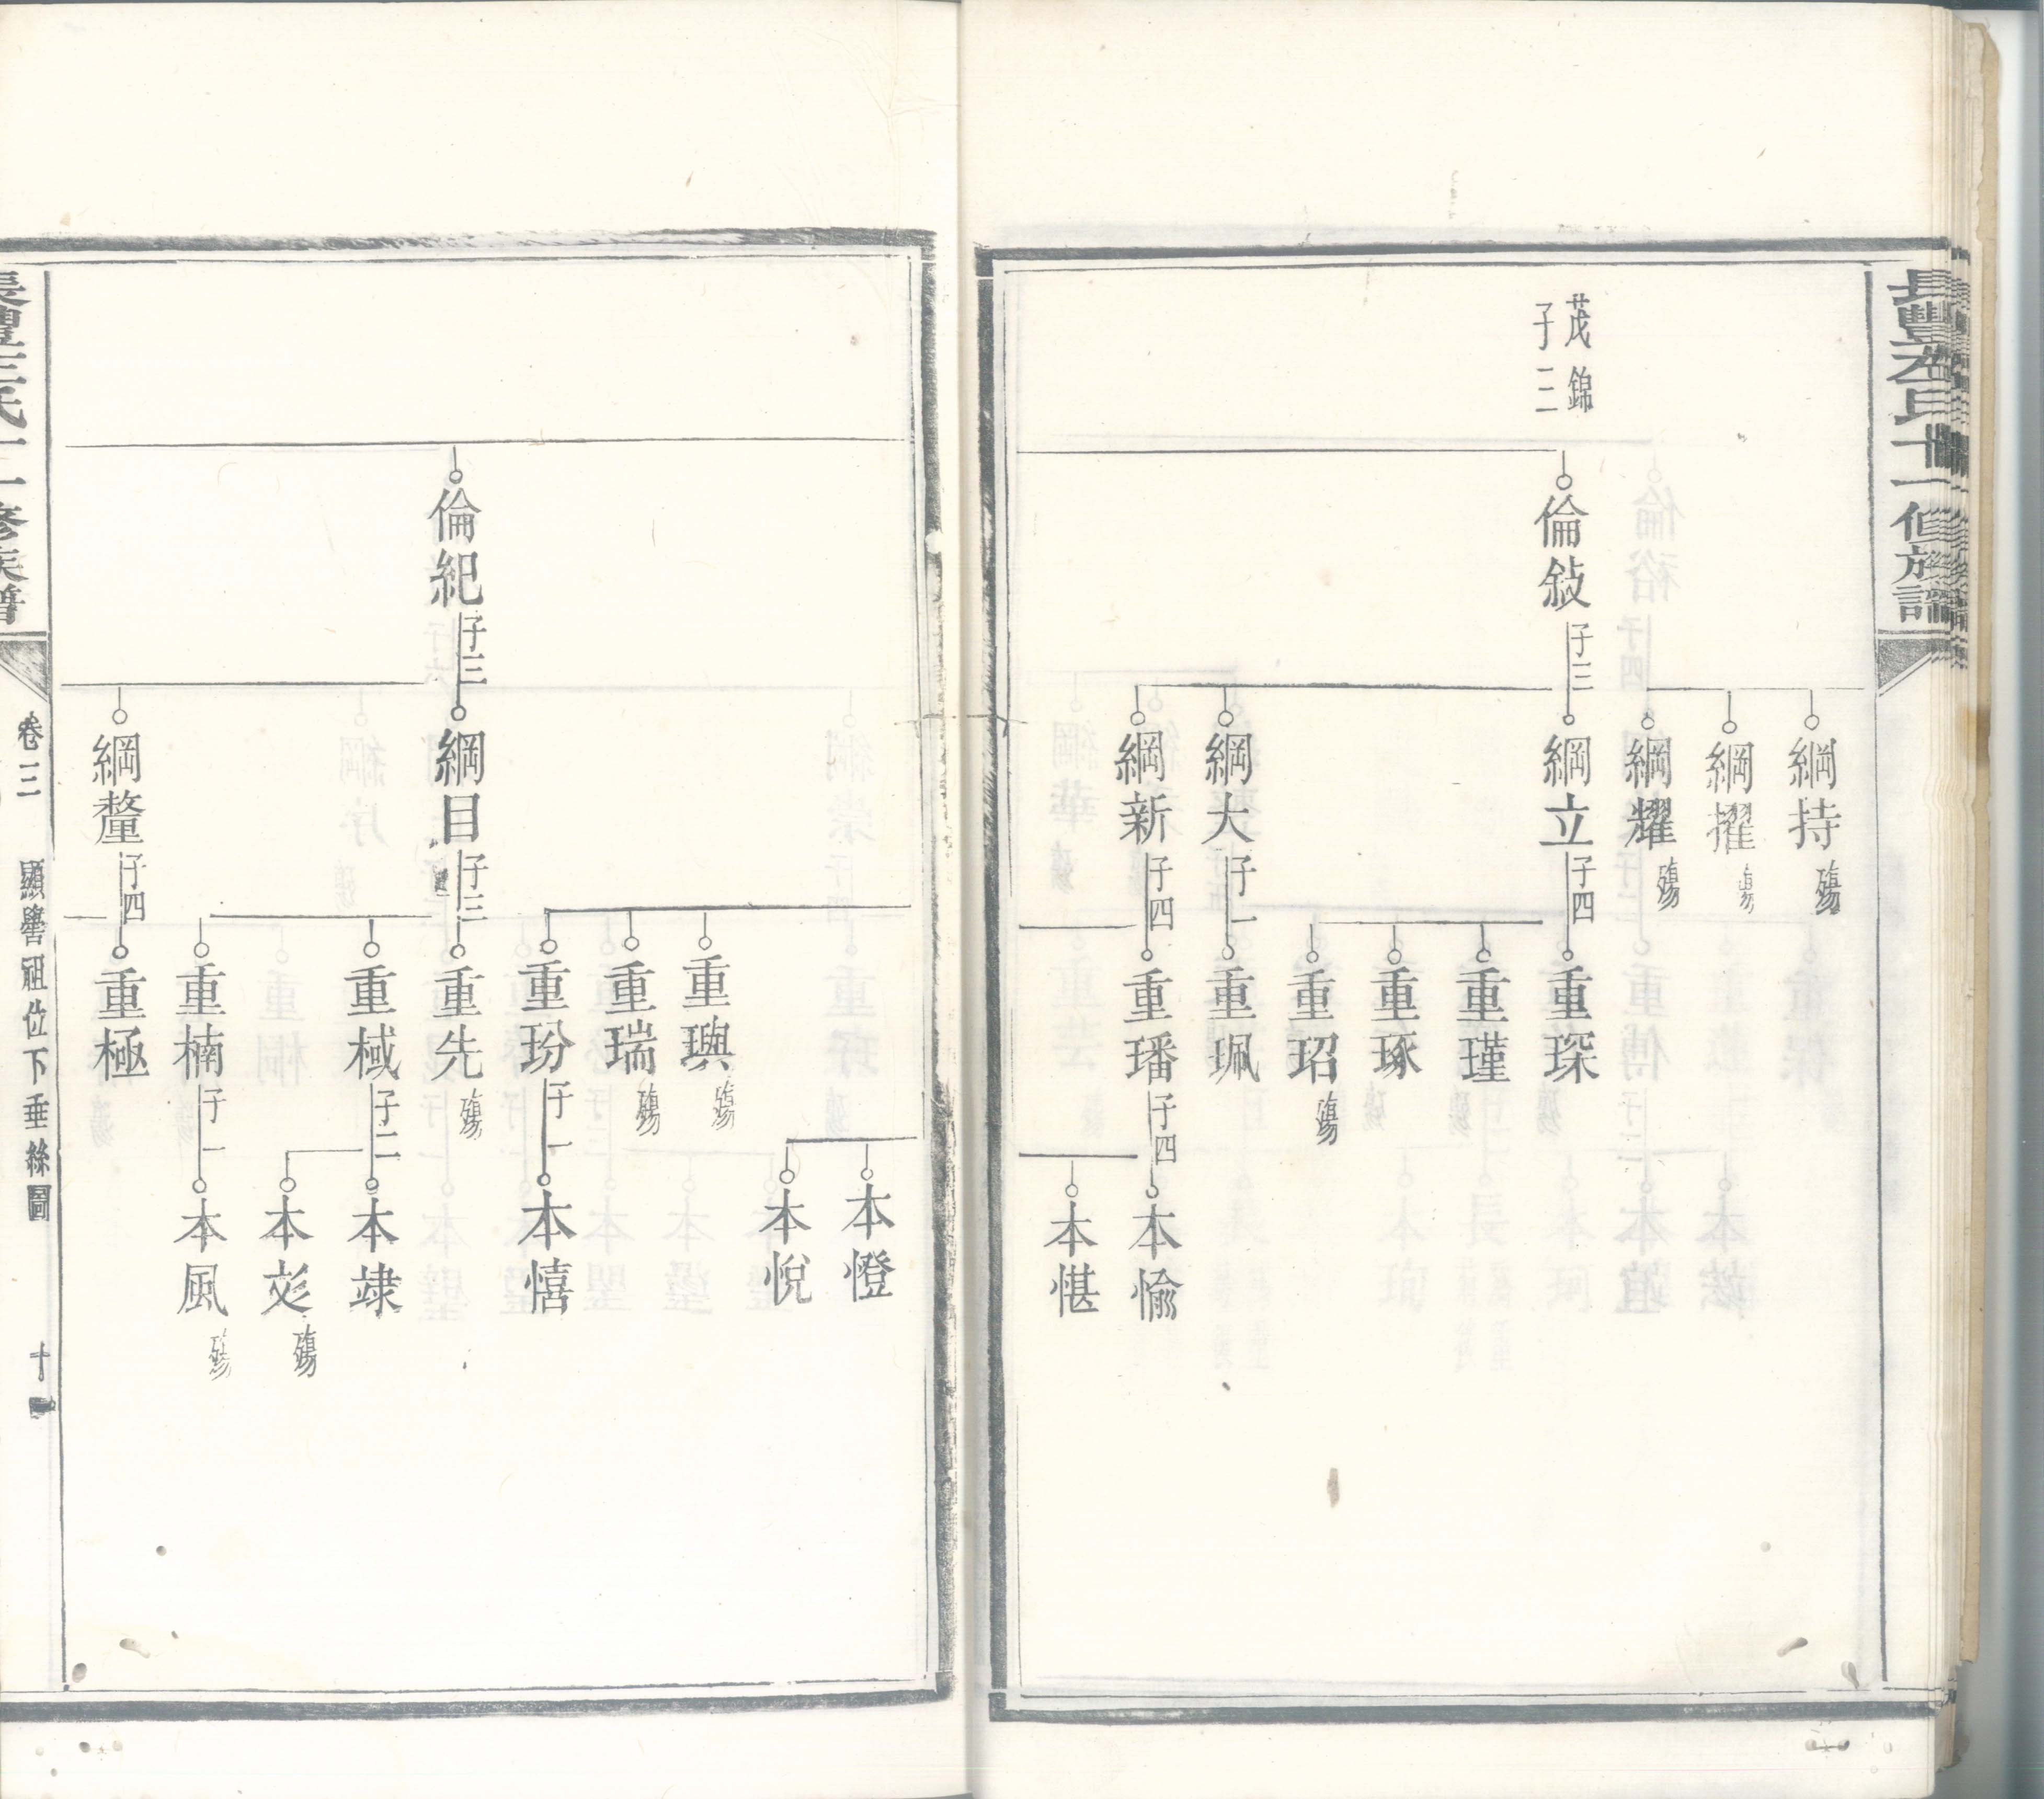 茂錦
子三
倫敍
子三
綱持
殤
綱擢
殤
綱耀
殤
綱立
子四
綱大
子一
綱新
子四
重琛
重瑾
重琢
重玿
殤
重珮
重璠
子四
本愉
本愖
倫紀
子三
綱目
子三
綱釐
子四
重璵
殤
重瑞
殤
重玢
子一
重先
殤
重棫
子二
重楠
子一
重極
本憕
本悅
本憘
本竦
本彣
殤
本風
殤
卷三
顯譽祖位下垂絲圖
十